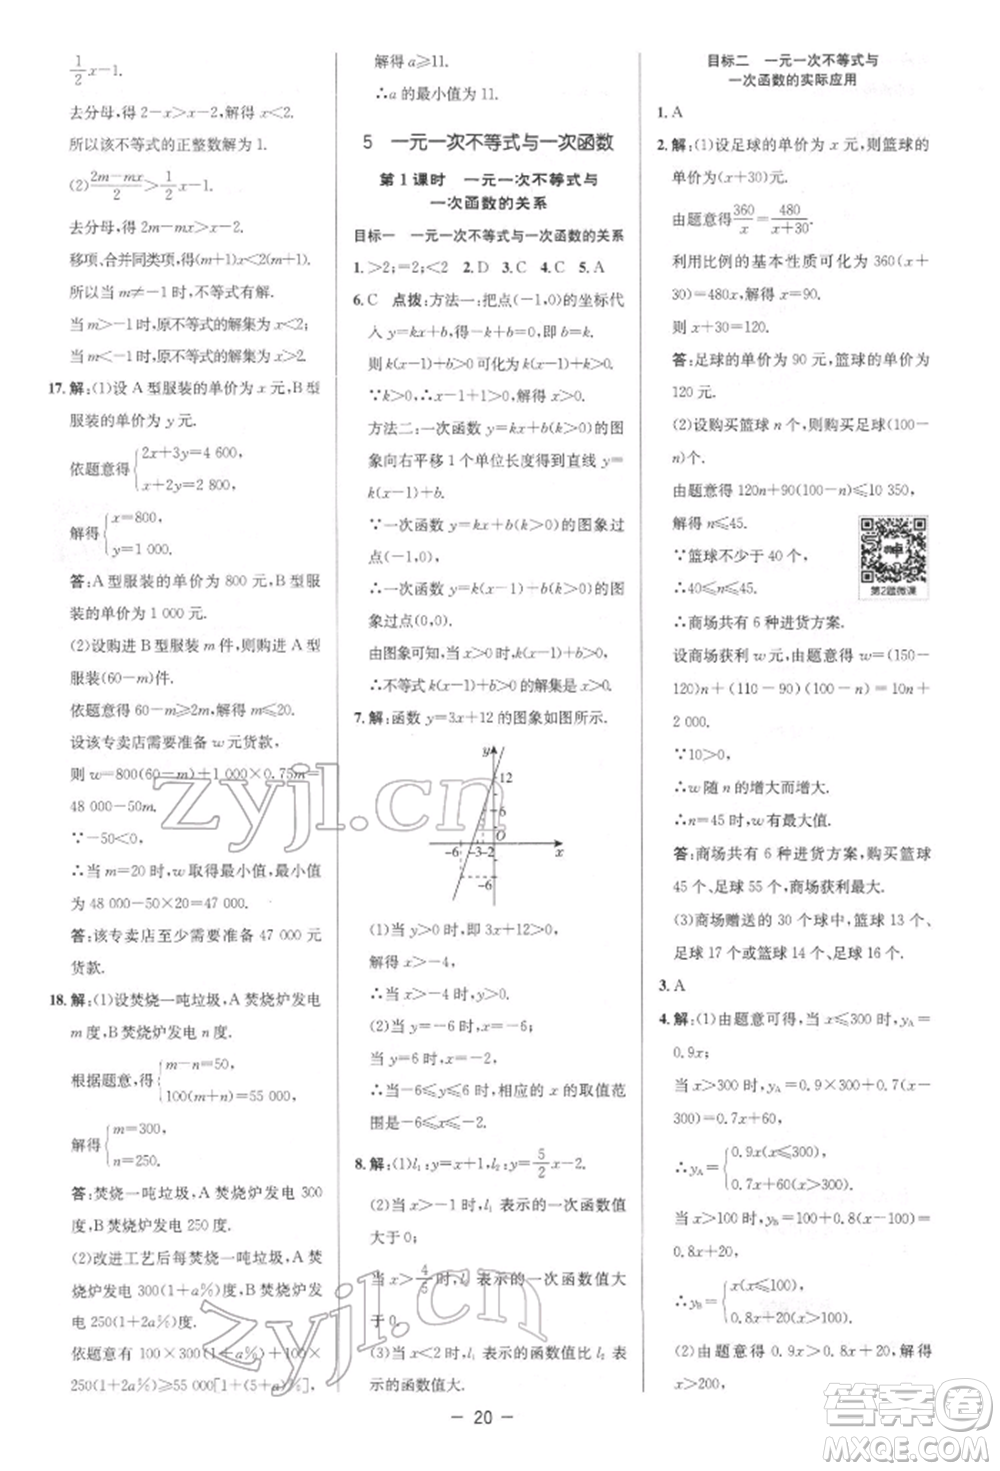 1/2 x-1.
去分母,得 2-x>x-2,解得 x<2.
所以该不等式的正整数解为 1.
(2) (2m-mx)/2 > 1/2 x-1.
去分母,得 2m-mx>x-2.
移项、合并同类项,得(m+1)x<2(m+1).
所以当 m≠-1 时,不等式有解.
当 m>-1 时,原不等式的解集为 x<2;
当 m<-1 时,原不等式的解集为 x>2.
17.解:(1)设 A 型服装的单价为 x 元,B 型
服装的单价为 y 元.
依题意得{2x+3y=4 600,
x+2y=2 800,
解得{x=800,
y=1 000.
答:A 型服装的单价为 800 元,B 型服
装的单价为 1 000 元.
(2)设购进 B 型服装 m 件,则购进 A 型
服装(60-m)件.
依题意得 60-m≥2m,解得 m≤20.
设该专卖店需要准备 w 元货款,
则 w=800(60-m)+1 000×0.75m=
48 000-50m.
∵-50<0,
∴当 m=20 时,w 取得最小值,最小值
为 48 000-50×20=47 000.
答:该专卖店至少需要准备 47 000 元
货款.
18.解:(1)设焚烧一吨垃圾,A 焚烧炉发电
m 度,B 焚烧炉发电 n 度.
根据题意,得{m-n=50,
100(m+n)=55 000,
解得{m=300,
n=250.
答:焚烧一吨垃圾,A 焚烧炉发电 300
度,B 焚烧炉发电 250 度.
(2)改进工艺后每焚烧一吨垃圾,A 焚
烧炉发电 300(1+a%)度,B 焚烧炉发
电 250(1+2a%)度.
依题意有 100×300(1+a%)+100×
250(1+2a%)≥55 000[1+(5+a)%],
解得 a≥11.
∴a 的最小值为 11.
5 一元一次不等式与一次函数
第 1 课时 一元一次不等式与
一次函数的关系
目标一 一元一次不等式与一次函数的关系
1.>2;=2;<2 2.D 3.C 4.C 5.A
6.C 点拨:方法一:把点(-1,0)的坐标代
入 y=kx+b,得-k+b=0,即 b=k.
则 k(x-1)+b=k(x-1)+k>0.
∵k>0,∴x-1+1>0,∴x>0.
方法二:一次函数 y=kx+b(k>0)的图
象向右平移 1 个单位长度得到直线 y=
k(x-1)+b.
∵一次函数 y=kx+b(k>0)的图象过
点(-1,0),
∴一次函数 y=k(x-1)+b(k>0)的图
象过点(0,0).
由图象可知,当 x>0 时,k(x-1)+b>0,
∴不等式 k(x-1)+b>0 的解集是 x>0.
7.解:函数 y=3x+12 的图象如图所示.
y
12
6
O
-6 -3-2 x
-6
(1)当 y>0 时,3x+12>0,
解得 x>-4,
∴当 x>-4 时,y>0.
(2)当 y=-6 时,x=-6;
当 y=6 时,x=-2,
∴当-6≤y≤6 时,相应的 x 的取值范
围是-6≤x≤-2.
8.解:(1)l₁:y=x+1,l₂:y=5/2 x-2.
(2)当 x>-1 时,l₁ 表示的一次函数值
大于 0;
当 x>4/5 时,l₂ 表示的一次函数值大
于 0.
(3)当 x<2 时,l₁ 表示的函数值比 l₂ 表
示的函数值大.
目标二 一元一次不等式与
一次函数的实际应用
1.A
2.解:(1)设足球的单价为 x 元,则篮球的
单价为(x+30)元.
由题意得 360/x = 480/(x+30).
利用比例的基本性质可化为 360(x+
30)=480x,解得 x=90.
则 x+30=120.
答:足球的单价为 90 元,篮球的单价为
120 元.
(2)设购买篮球 n 个,则购买足球(100-
n)个.
由题意得 120n+90(100-n)≤10 350,
解得 n≤45.
∵篮球不少于 40 个,
∴40≤n≤45.
第2题微课
∴商场共有 6 种进货方案.
设商场获利 w 元,则 w=(150-
120)n+(110-90)(100-n)=10n+
2 000.
∵10>0,
∴w 随 n 的增大而增大.
∴n=45 时,w 有最大值.
答:商场共有 6 种进货方案,购买篮球
45 个、足球 55 个,商场获利最大.
(3)商场赠送的 30 个球中,篮球 13 个、
足球 17 个或篮球 14 个、足球 16 个.
3.A
4.解:(1)由题意可得,当 x≤300 时,yA=
0.9x;
当 x>300 时,yA=0.9×300+0.7(x-
300)=0.7x+60,
∴yA={0.9x(x≤300),
0.7x+60(x>300).
当 x>100 时,yB=100+0.8(x-100)=
0.8x+20,
∴yB={x(x≤100),
0.8x+20(x>100).
(2)由题意得 0.9x>0.8x+20,解得
x>200,
— 20 —
zyjl.cn
zyjl.cn
答案卷
MXQE.COM